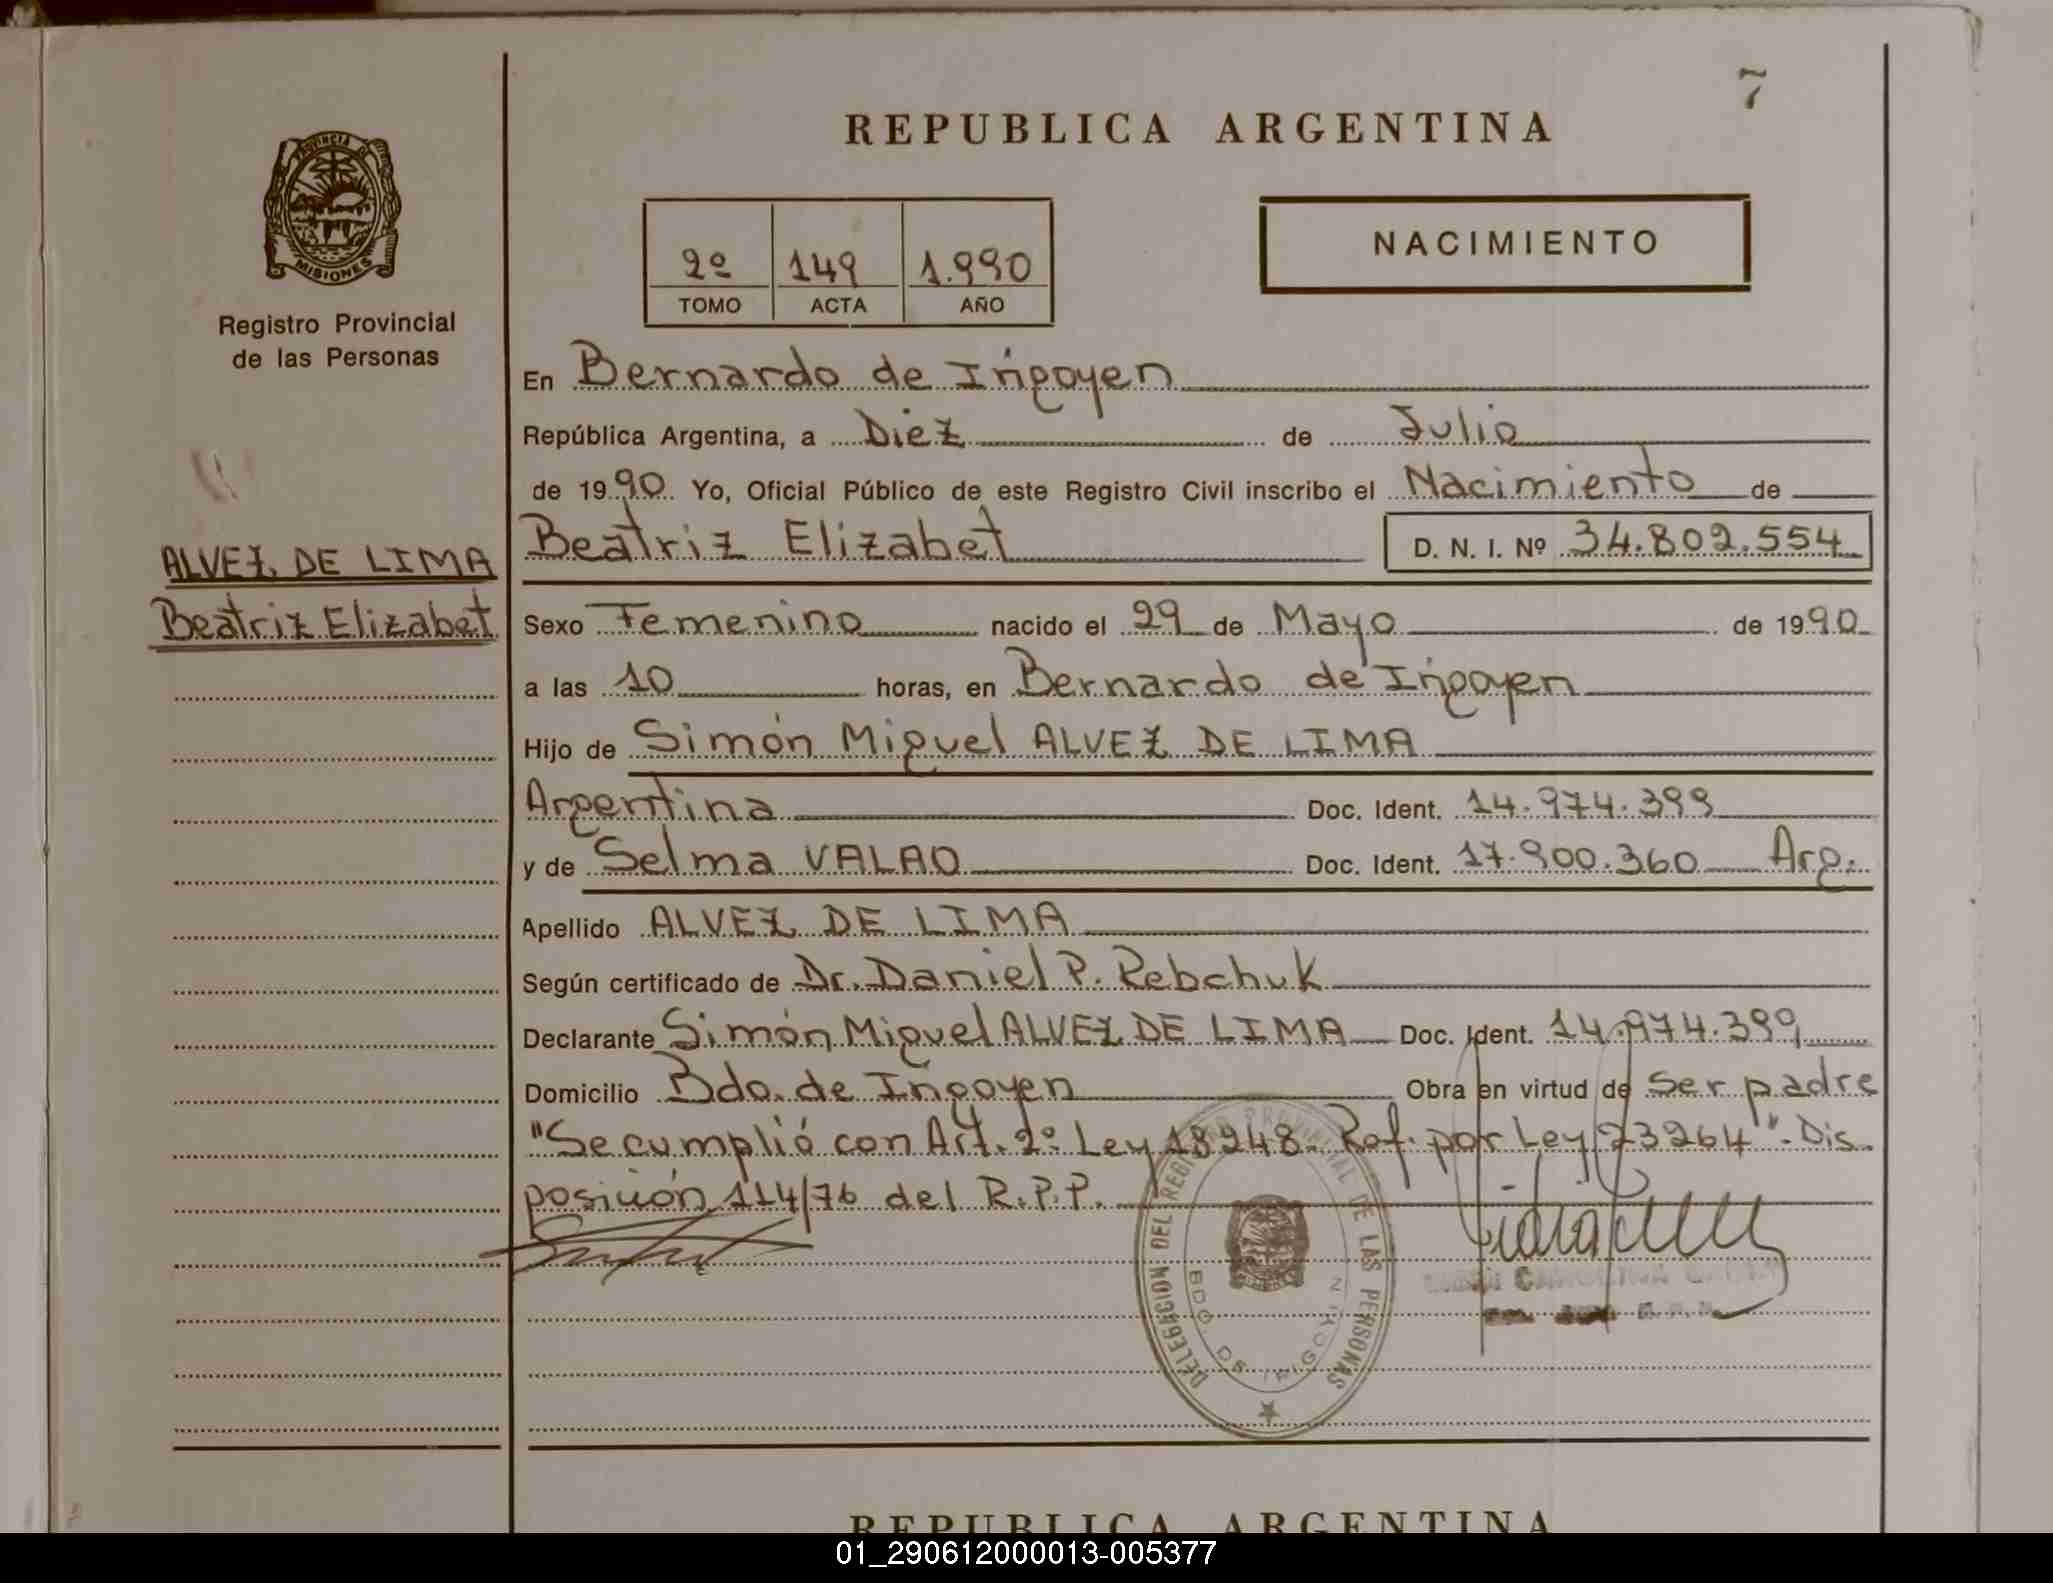 7
REPUBLICA ARGENTINA
PROVINCIA DE
MISIONES
Registro Provincial
de las Personas
2º 149 1.990
TOMO ACTA AÑO
NACIMIENTO
En Bernardo de Irigoyen
República Argentina, a Diez de Julio
de 1990 Yo, Oficial Público de este Registro Civil inscribo el Nacimiento de
Beatriz Elizabet D. N. I. Nº 34.802.554
ALVEZ DE LIMA
Beatriz Elizabet
Sexo Femenino nacido el 29 de Mayo de 1990
a las 10 horas, en Bernardo de Irigoyen
Hijo de Simón Miguel ALVEZ DE LIMA
Argentina Doc. Ident. 14.974.399
y de Selma VALAO Doc. Ident. 17.900.360 Arg.
Apellido ALVEZ DE LIMA
Según certificado de Dr. Daniel P. Rebchuk
Declarante Simón Miguel ALVEZ DE LIMA Doc. Ident. 14.974.399
Domicilio Bdo. de Irigoyen Obra en virtud de ser padre
"Se cumplió con Art. 2º Ley 18248. Ref. por Ley 23264". Dis
posición 114/76 del R.P.P.
DELEGACION DEL REGISTRO PROVINCIAL DE LAS PERSONAS
BDO. DE IRIGOYEN
REPUBLICA ARGENTINA
01_290612000013-005377